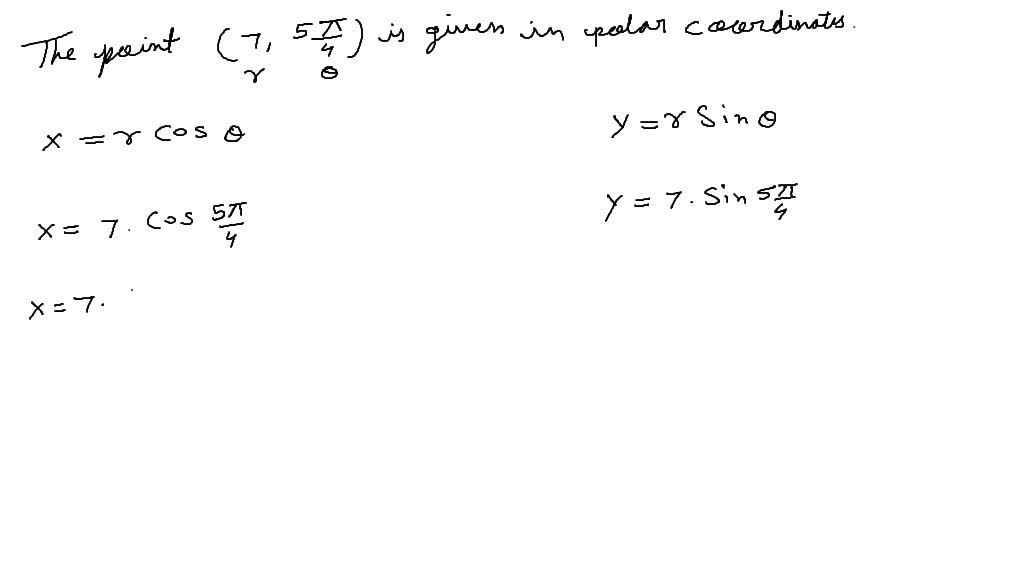 The point (7, 5π/4) is given in polar coordinates.
r θ
x = r cos θ
y = r Sin θ
x = 7. Cos 5π/4
y = 7. Sin 5π/4
x = 7.